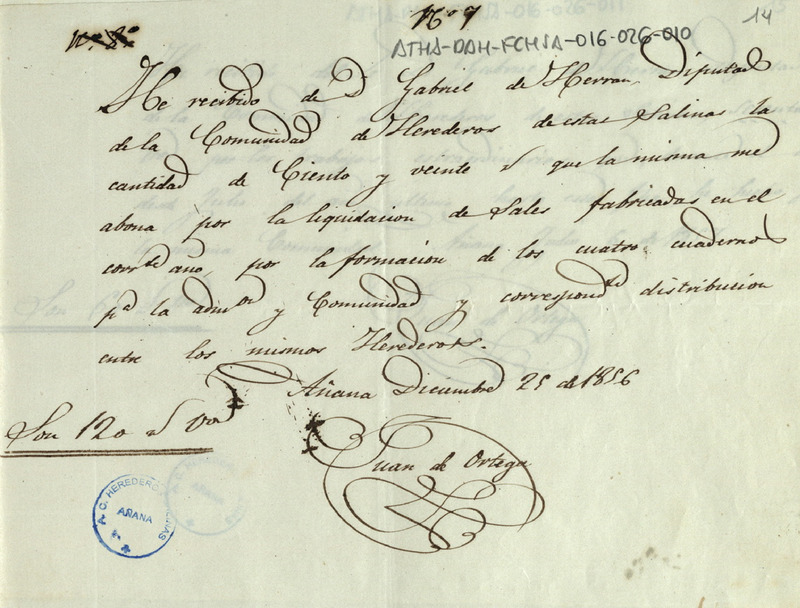 Nº 7
14
ATHA-DAH-FCHSA-016-026-010
He recibido de Dⁿ Gabriel de Herran, Diputado
de la Comunidad de Herederos de estas Salinas la
cantidad de Ciento y veinte rˢ que la misma me
abona por la liquidacion de Sales fabricadas en el
corrᵗᵉ año, por la formacion de los cuatro cuadernos
pᵃ la admᵒⁿ y Comunidad y correspondᵗᵉ distribucion
entre los mismos Herederos.
Añana Diciembre 25 de 1856
Son 120 rˢ vᵒⁿ
Juan de Ortega
A. C. HEREDEROS SALINAS
AÑANA